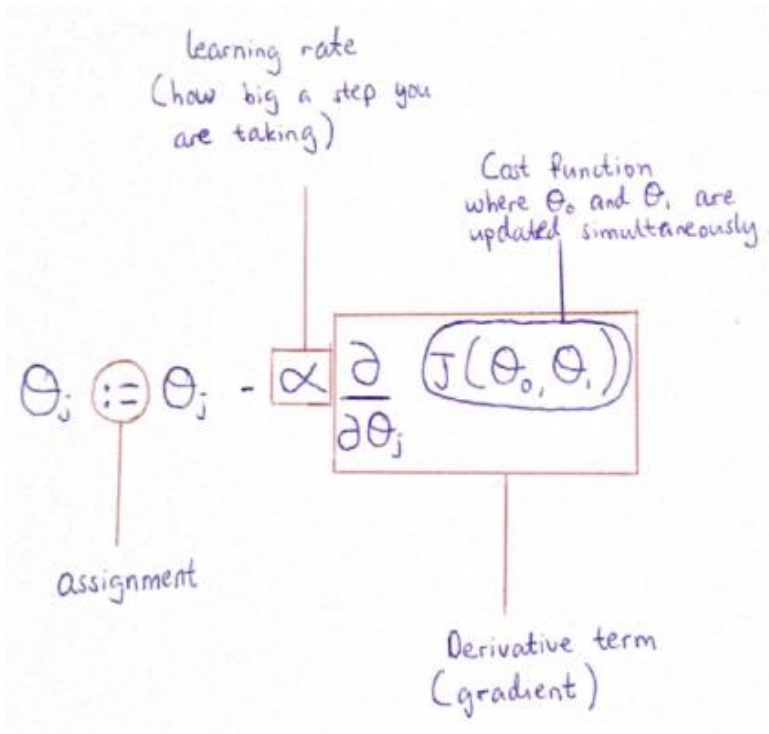 learning rate
(how big a step you
are taking)
Cost function
where θ₀ and θ₁ are
updated simultaneously
θⱼ := θⱼ - α ∂/∂θⱼ J(θ₀, θ₁)
assignment
Derivative term
(gradient)